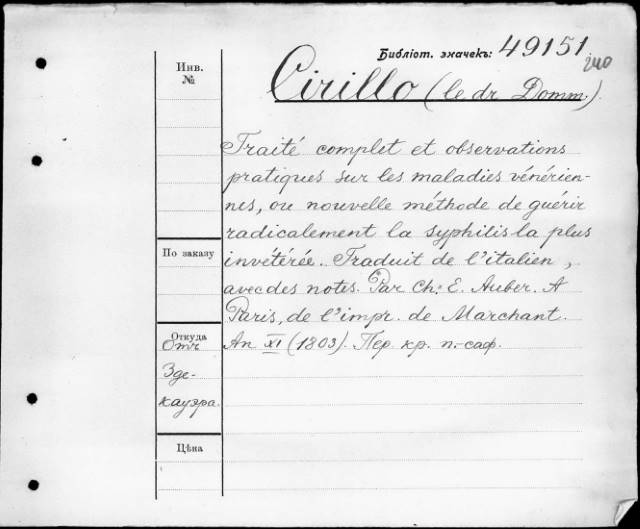 Библіот. значекъ: 49151
240
Инв.
№
Cirillo (le dr Domm.).
Traité complet et observations
pratiques sur les maladies vénérien-
nes, ou nouvelle méthode de guérir
radicalement la syphilis la plus
По заказу
invétérée. Traduit de l'italien,
avec des notes. Par Ch: E. Auber. A
Paris, de l'impr. de Marchant.
Откуда
Отъ
An XI (1803). Пер. кр. п.-саф.
Зде-
кауэра.
Цѣна